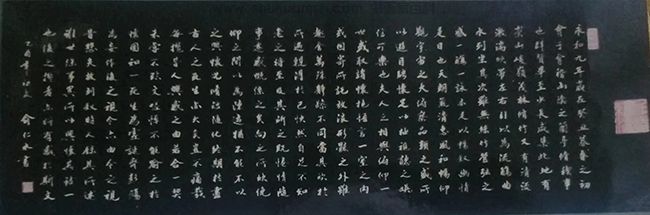 永和九年歲在癸丑暮春之初
會于會稽山陰之蘭亭脩稧事
也群賢畢至少長咸集此地有
崇山峻嶺茂林脩竹又有清流
激湍映帶左右引以為流觴曲
水列坐其次雖無絲竹管弦之
盛一觴一詠亦足以暢敘幽情
是日也天朗氣清惠風和暢仰
觀宇宙之大俯察品類之盛所
以遊目騁懷足以極視聽之娛
信可樂也夫人之相與俯仰一
世或取諸懷抱悟言一室之內
或因寄所託放浪形骸之外雖
趣舍萬殊靜躁不同當其欣於
所遇暫得於己快然自足不知
老之將至及其所之既惓情隨
事遷感慨係之矣向之所欣俛
仰之間以為陳迹猶不能不以
之興懷況脩短隨化終期於盡
古人云死生亦大矣豈不痛哉
每攬昔人興感之由若合一契
未嘗不臨文嗟悼不能喻之於
懷固知一死生為虛誕齊彭殤
為妄作後之視今亦由今之視
昔悲夫故列敘時人錄其所述
雖世殊事異所以興懷其致一
也後之攬者亦將有感於斯文
俞仁水書